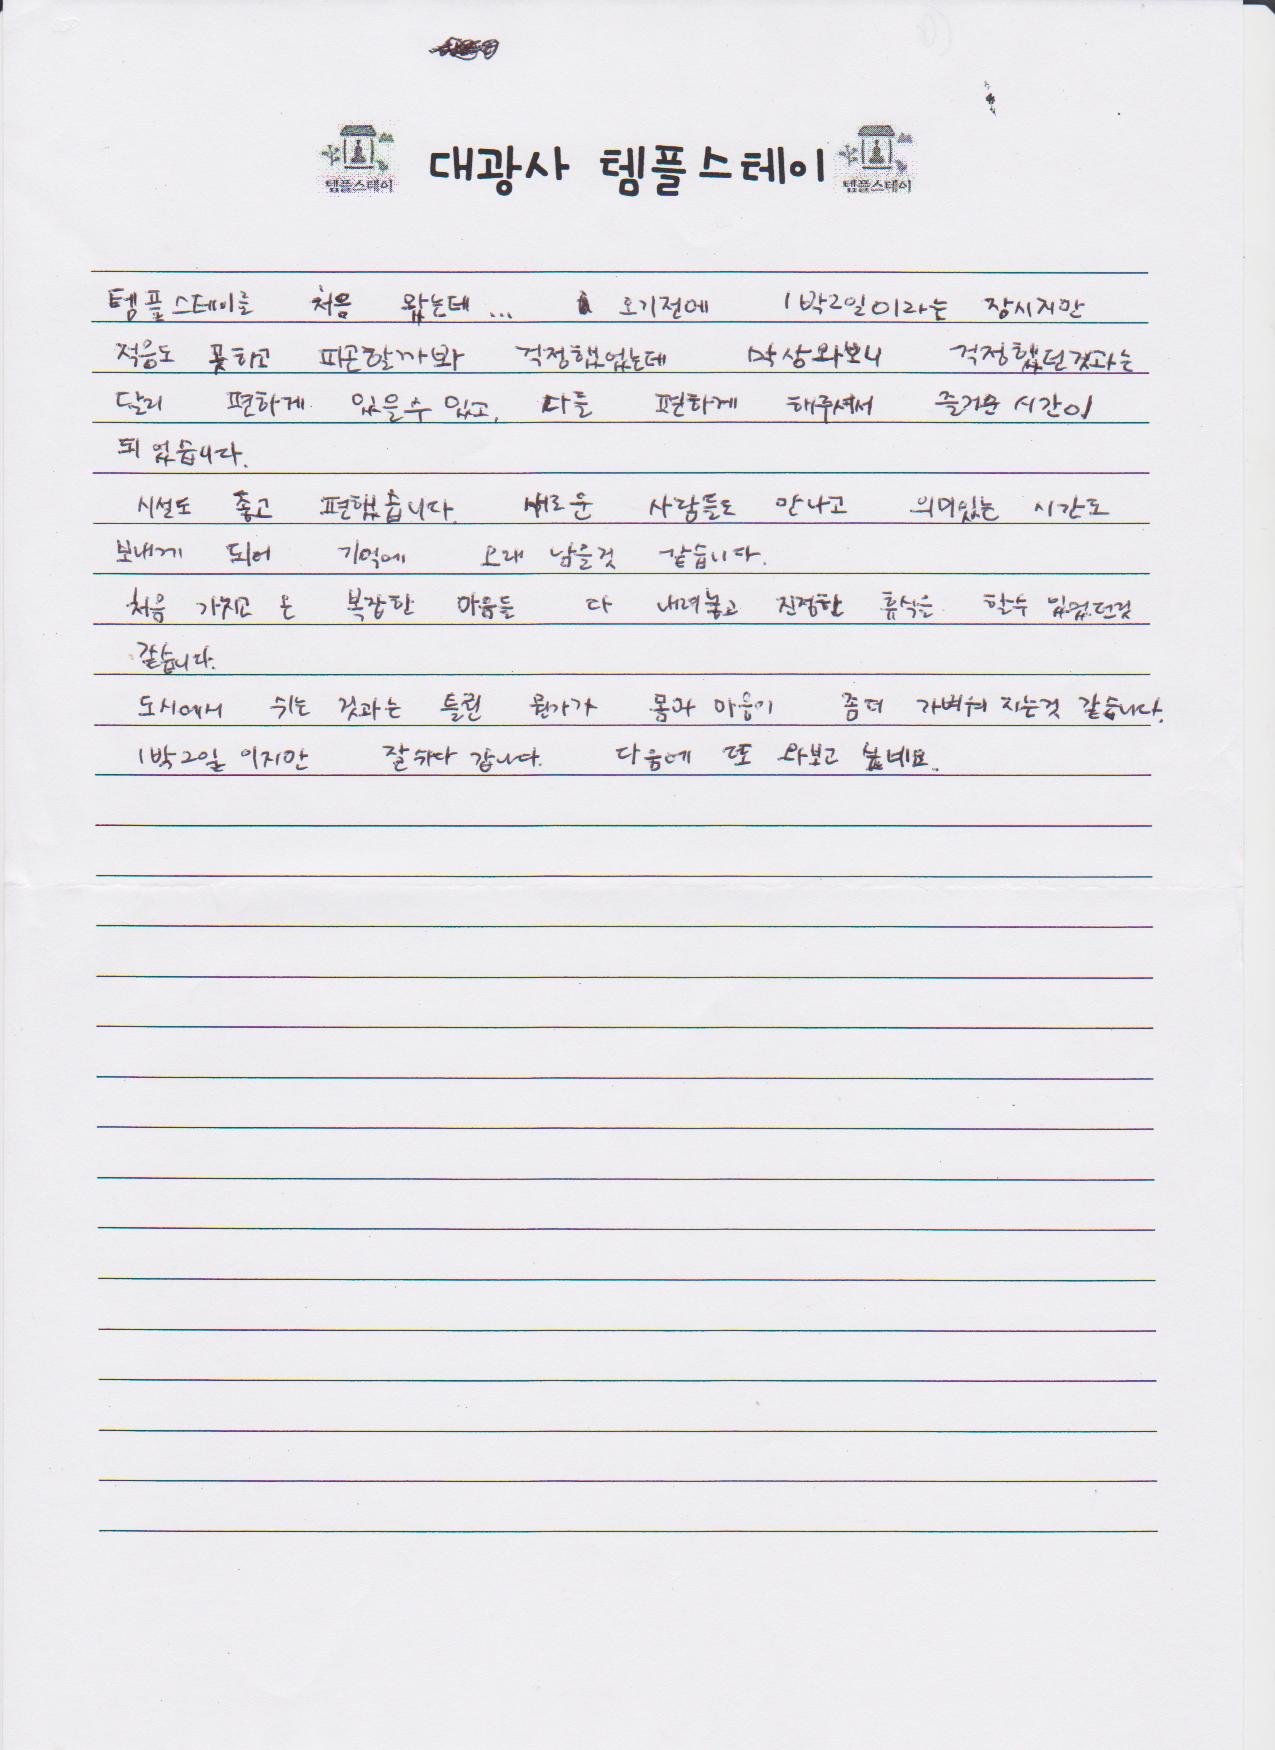 대광사 템플스테이
템플스테이
템플스테이
템플스테이를 처음 왔는데... 오기전에 1박2일이라는 잠시지만
적응도 못하고 피곤할까봐 걱정했었는데 막상와보니 걱정했던것과는
달리 편하게 있을수 있고, 다들 편하게 해주셔서 즐거운 시간이
되었습니다.
시설도 좋고 편했습니다. 새로운 사람들도 만나고 의미있는 시간도
보내게 되어 기억에 오래 남을것 같습니다.
처음 가지고 온 복잡한 마음들 다 내려놓고 진정한 휴식을 할수 있었던것
같습니다.
도시에서 쉬는 것과는 틀린 뭔가가 몸과 마음이 좀더 가벼워 지는것 같습니다.
1박2일 이지만 잘쉬다 갑니다. 다음에 또 와보고 싶네요.